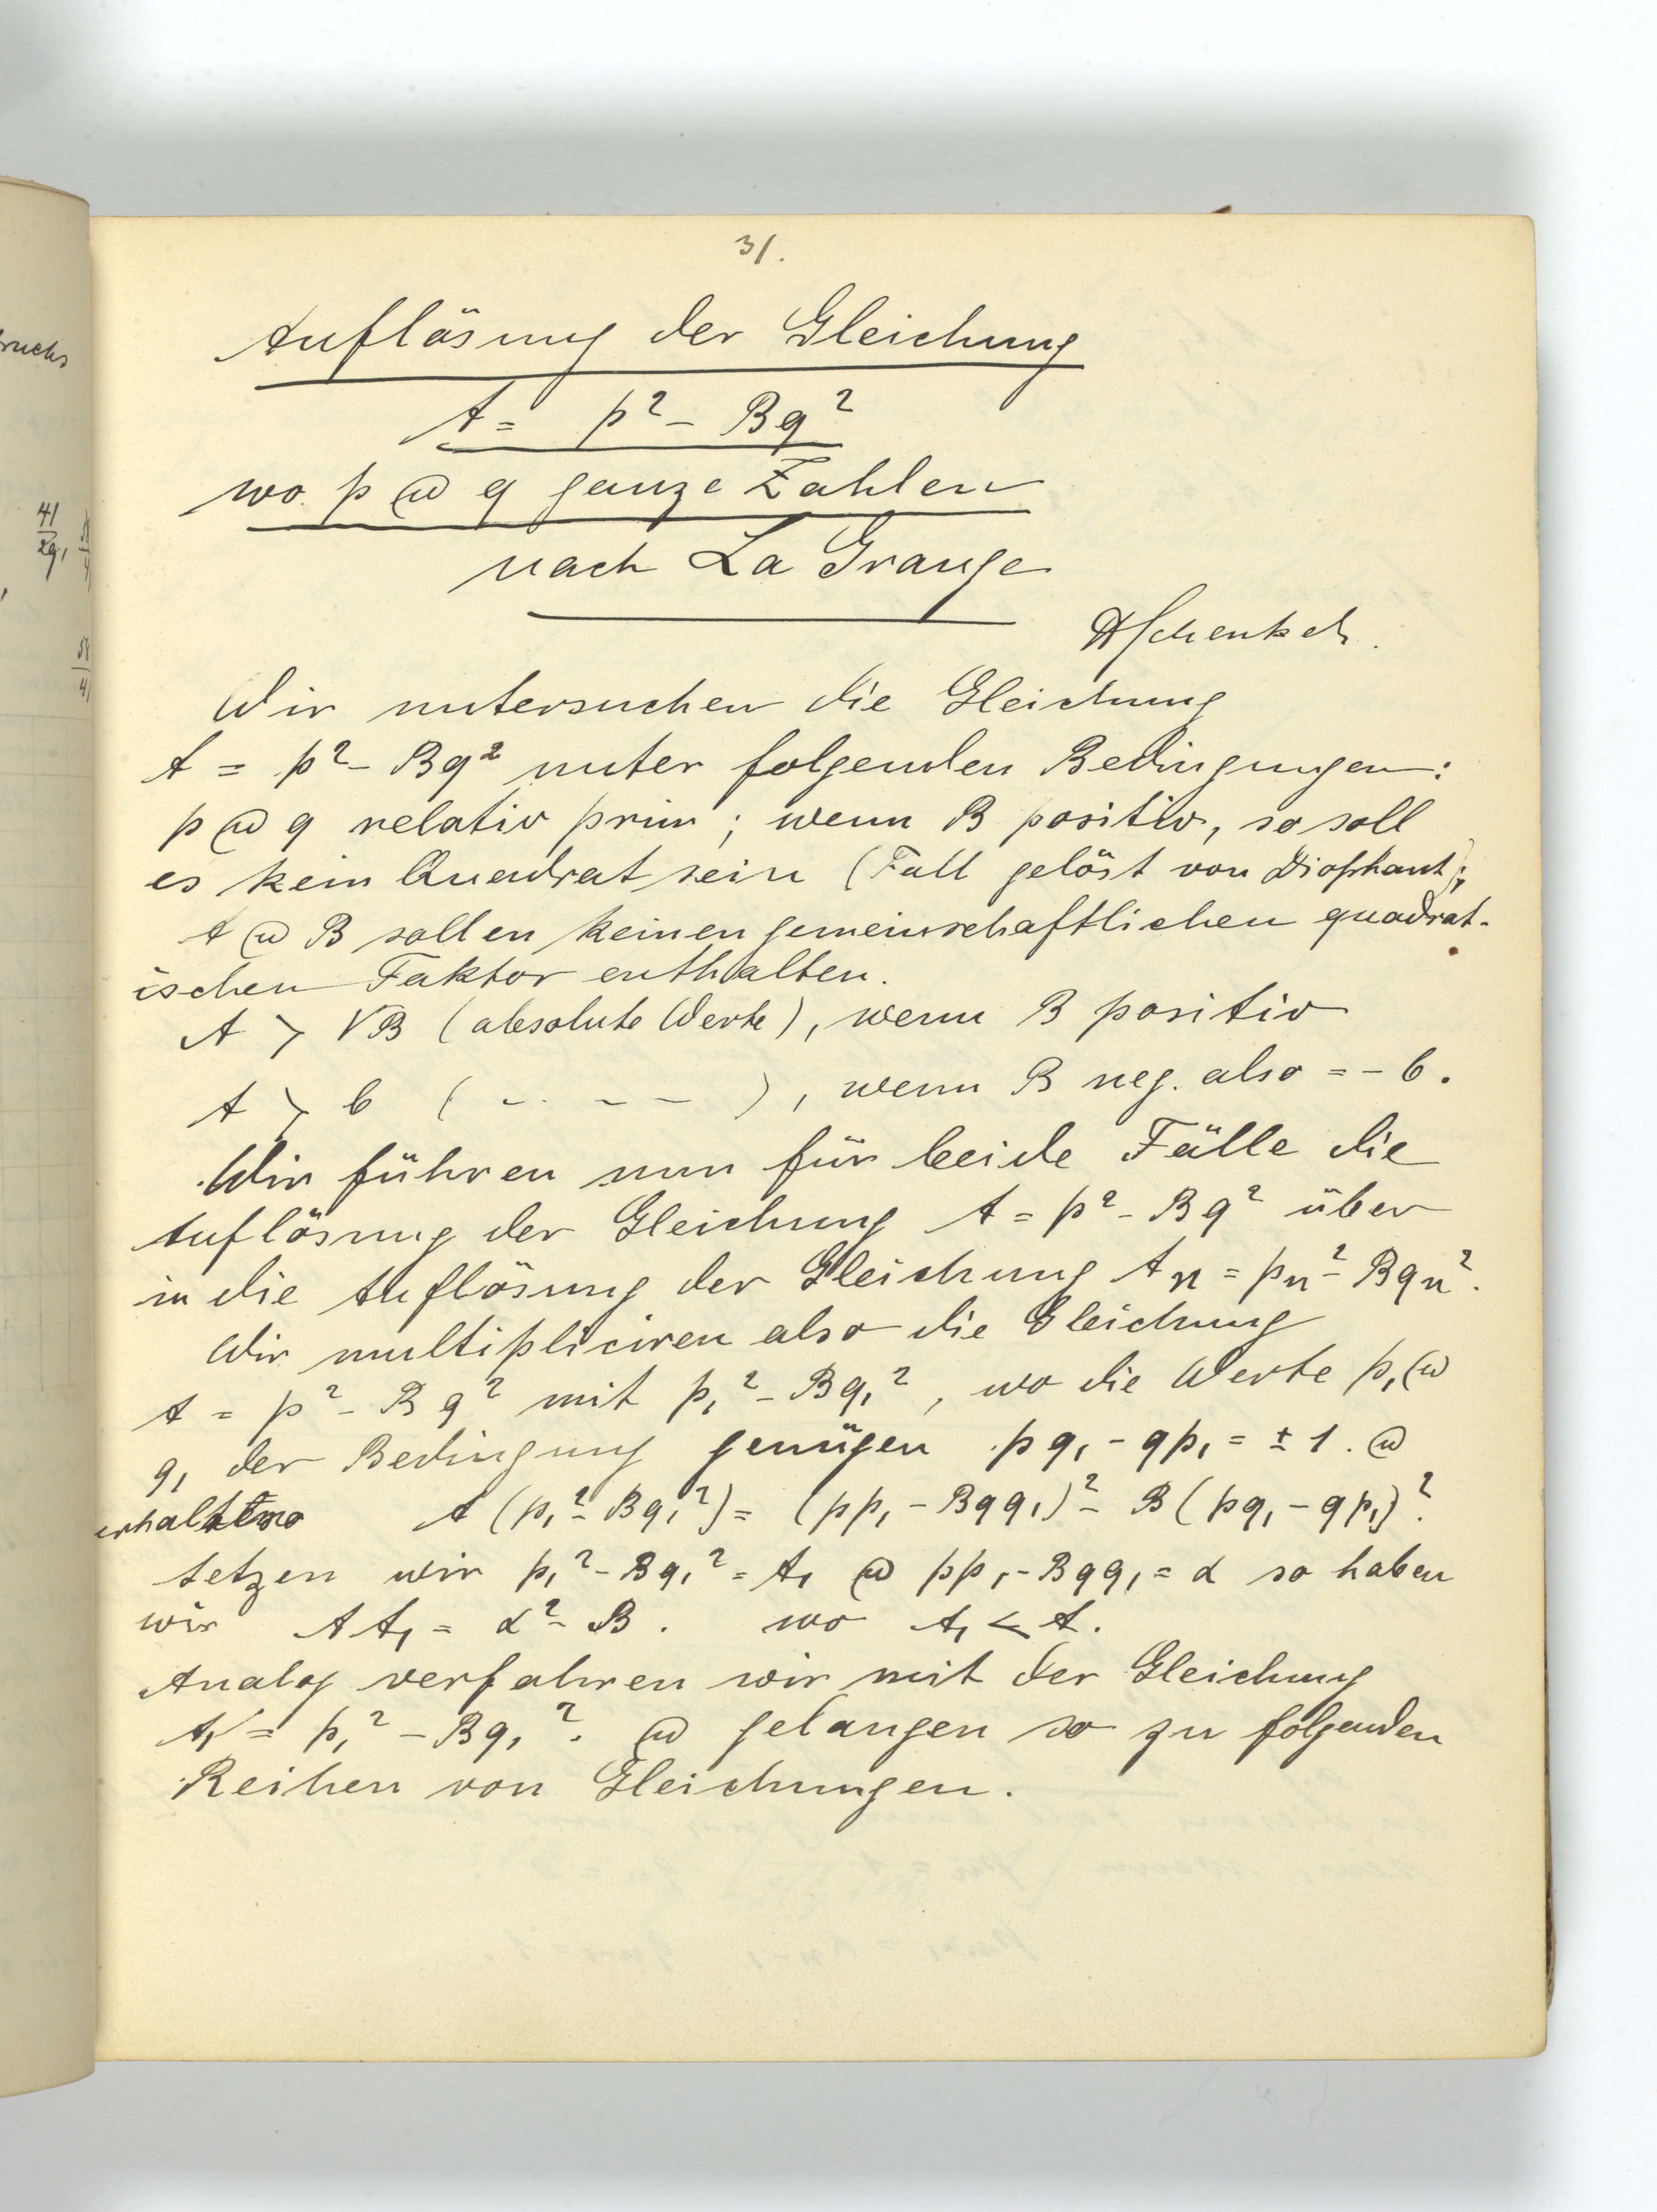 31.
Auflösung der Gleichung
A = p² - Bq²
wo p @ q ganze Zahlen
nach La Grange
Wir untersuchen die Gleichung
A = p² - Bq² unter folgenden Bedingungen:
p @ q relativ prim; wenn B positiv, so soll
es kein Quadrat sein (Fall gelöst von Diophant);
A @ B sollen keinen gemeinschaftlichen quadrat-
ischen Faktor enthalten.
A > √B (absolute Werte), wenn B positiv
A > b ( - - - - ), wenn B neg. also = - b.
Wir führen nun für beide Fälle die
Auflösung der Gleichung A = p² - Bq² über
in die Auflösung der Gleichung Aₙ = pₙ² - Bqₙ².
Wir multipliciren also die Gleichung
A = p² - Bq² mit p₁² - Bq₁², wo die Werte p₁ @
q₁ der Bedingung genügen pq₁ - qp₁ = ± 1. @
A (p₁² - Bq₁²) = (pp₁ - Bqq₁)² - B (pq₁ - qp₁)².
setzen wir p₁² - Bq₁² = A₁ @ pp₁ - Bqq₁ = α so haben
wir AA₁ = α² - B. wo A₁ < A.
Analog verfahren wir mit der Gleichung
A₁ = p₁² - Bq₁². @ gelangen so zu folgenden
Reihen von Gleichungen.
ruchs
41
29,
58
41